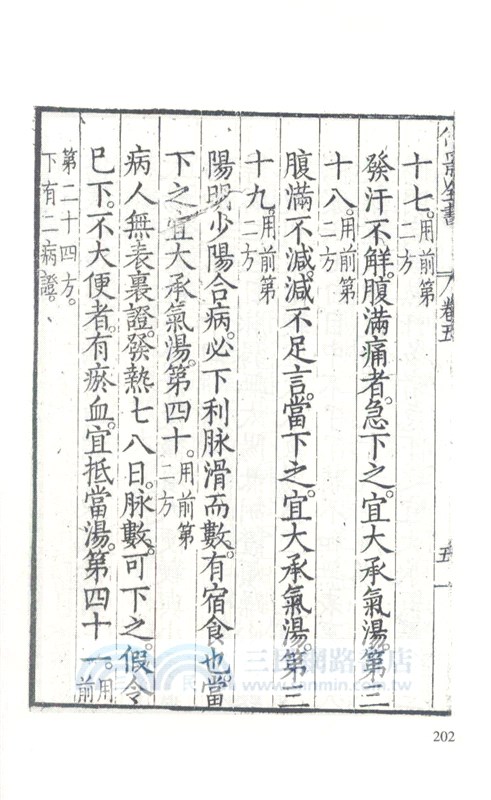 全書 卷五 五
十七。用前第二方
發汗不解。腹滿痛者。急下之。宜大承氣湯。第三
十八。用前第二方
腹滿不減。減不足言。當下之。宜大承氣湯。第三
十九。用前第二方
陽明少陽合病。必下利脉滑而數。有宿食也。當
下之。宜大承氣湯。第四十。用前第二方
病人無表裏證。發熱七八日。脉數。可下之。假令
巳下。不大便者。有瘀血。宜抵當湯。第四十一。用前
第二十四方。下有二病證。
三民網路書店
www.sanmin.com.tw
202